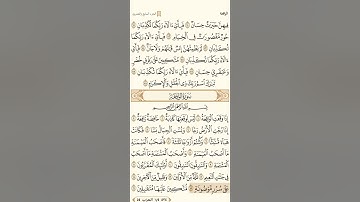 الواقعة
الجزء السابع والعشرون
فِيهِنَّ خَيْرَٰتٌ حِسَانٌ فَبِأَيِّ ءَالَآءِ رَبِّكُمَا تُكَذِّبَانِ
حُورٌ مَّقْصُورَٰتٌ فِي ٱلْخِيَامِ فَبِأَيِّ ءَالَآءِ رَبِّكُمَا
تُكَذِّبَانِ لَمْ يَطْمِثْهُنَّ إِنسٌ قَبْلَهُمْ وَلَا جَآنٌّ فَبِأَيِّ
ءَالَآءِ رَبِّكُمَا تُكَذِّبَانِ مُتَّكِـِٔينَ عَلَىٰ رَفْرَفٍ خُضْرٍ
وَعَبْقَرِيٍّ حِسَانٍ فَبِأَيِّ ءَالَآءِ رَبِّكُمَا تُكَذِّبَانِ
تَبَٰرَكَ ٱسْمُ رَبِّكَ ذِي ٱلْجَلَٰلِ وَٱلْإِكْرَامِ
سُورَةُ الوَاقِعَةِ
بِسْمِ ٱللَّهِ ٱلرَّحْمَٰنِ ٱلرَّحِيمِ
إِذَا وَقَعَتِ ٱلْوَاقِعَةُ لَيْسَ لِوَقْعَتِهَا كَاذِبَةٌ خَافِضَةٌ رَّافِعَةٌ
إِذَا رُجَّتِ ٱلْأَرْضُ رَجًّا وَبُسَّتِ ٱلْجِبَالُ بَسًّا فَكَانَتْ
هَبَآءً مُّنۢبَثًّا وَكُنتُمْ أَزْوَٰجًا ثَلَٰثَةً فَأَصْحَٰبُ ٱلْمَيْمَنَةِ
مَآ أَصْحَٰبُ ٱلْمَيْمَنَةِ وَأَصْحَٰبُ ٱلْمَشْـَٔمَةِ مَآ أَصْحَٰبُ
ٱلْمَشْـَٔمَةِ وَٱلسَّٰبِقُونَ ٱلسَّٰبِقُونَ أُو۟لَٰٓئِكَ ٱلْمُقَرَّبُونَ
فِي جَنَّٰتِ ٱلنَّعِيمِ ثُلَّةٌ مِّنَ ٱلْأَوَّلِينَ وَقَلِيلٌ مِّنَ ٱلْـَٔاخِرِينَ
عَلَىٰ سُرُرٍ مَّوْضُونَةٍ مُّتَّكِـِٔينَ عَلَيْهَا مُتَقَٰبِلِينَ